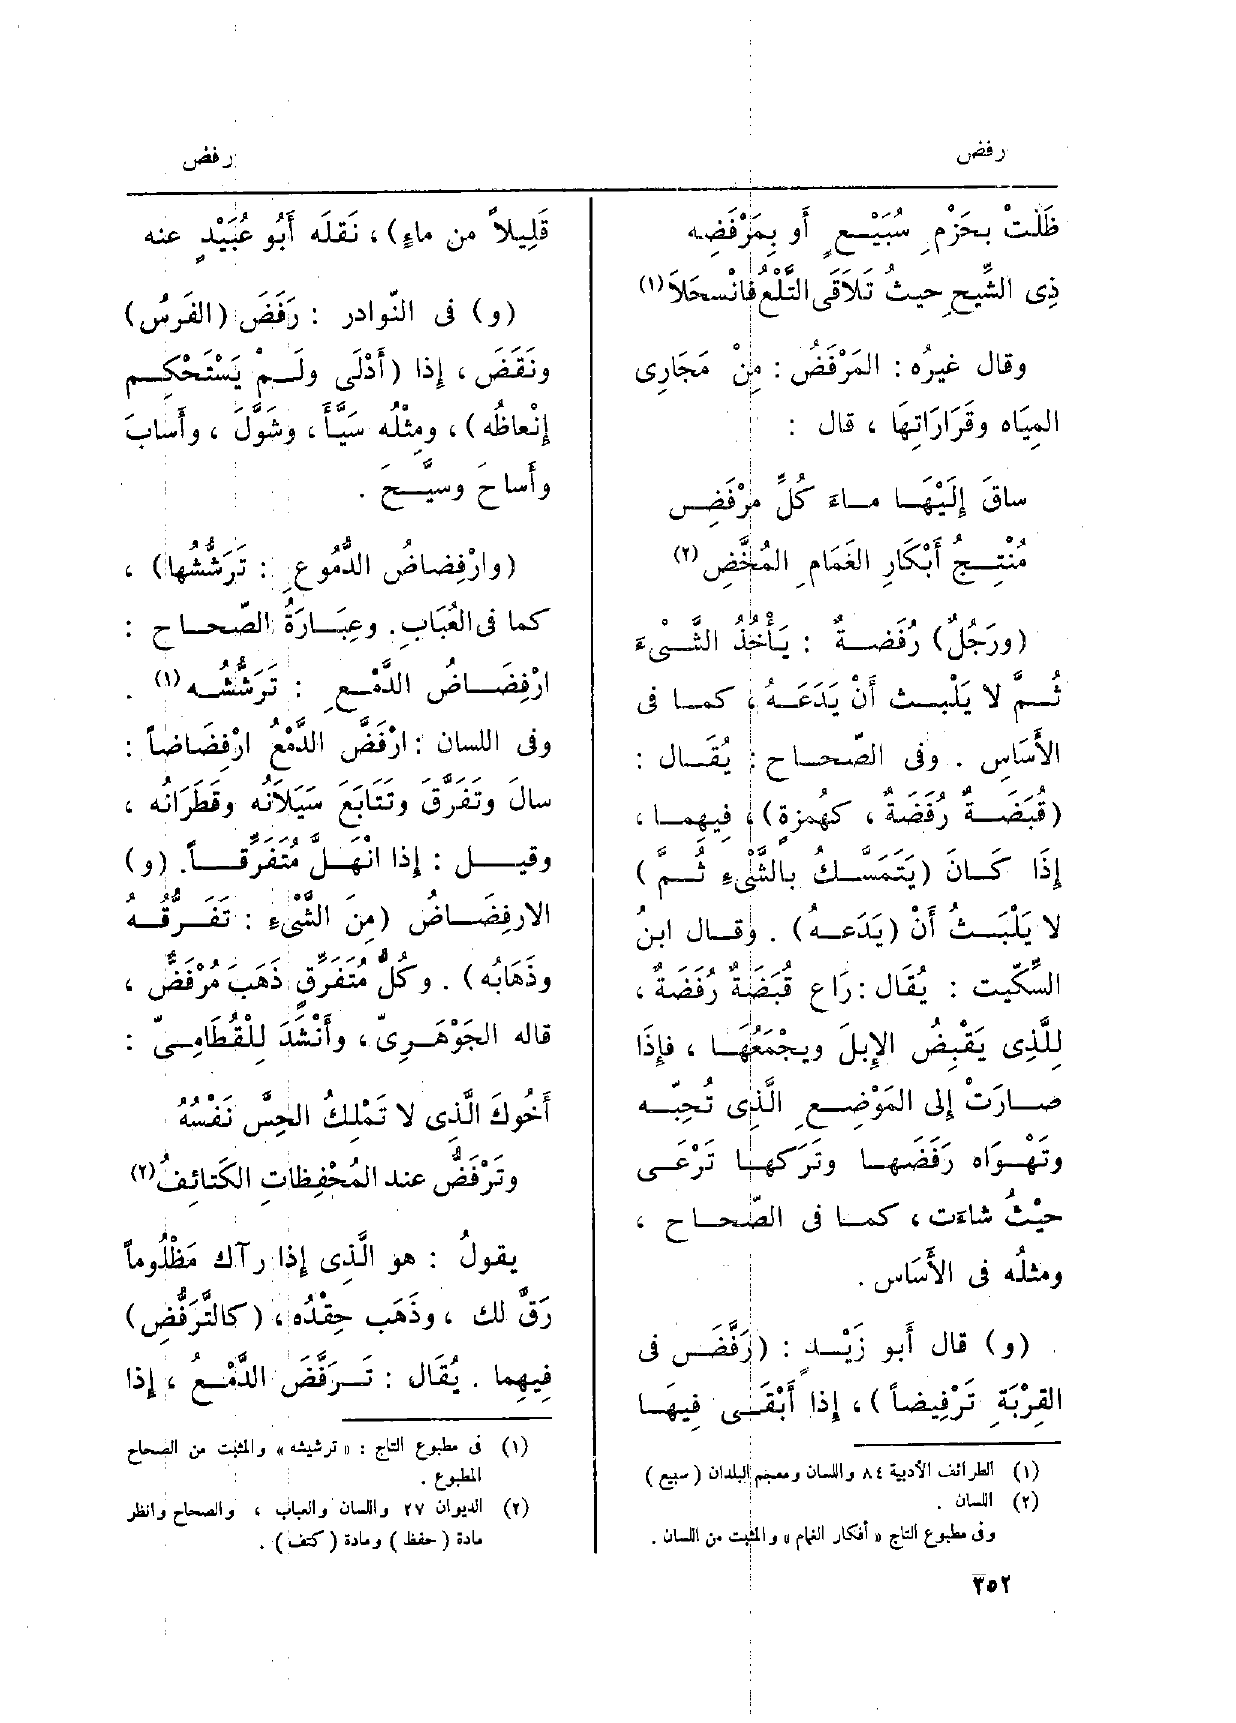 رفض
رفض
ظَلَّتْ بحَزْمِ سُبَيْعٍ أو بِمَرْفَضِه
ذِى الشِّيحِ حيثُ تَلاَقَى التَّلْعُ فَانْسحَلاَ (١)
وقال غيرُه : المَرْفَضُ : مِنْ مَجَارِى
المِيَاه وقَرَارَاتِهَا ، قال :
ساقَ إِلَيْهَا ماءَ كُلِّ مَرْفَضِ
مُنْتِجُ أَبْكَارِ الغَمَامِ المُخَّضِ (٢)
(ورَجُلٌ) رُفَضةٌ : يَأْخُذُ الشَّىْءَ
ثُمَّ لا يَلْبث أَنْ يَدَعَهُ ، كما فى
الأَسَاسِ . وفى الصّحاح : يُقَال :
(قُبَضَةٌ رُفَضَةٌ ، كهُمزةٍ) ، فِيهما ،
إِذَا كَانَ (يَتَمَسك بالشَّىْءِ ثُمَّ)
لا يَلْبَثُ أَنْ (يَدَعهُ) . وقال ابنُ
السِّكّيت : يُقَال : رَاعٍ قُبَضَةٌ رُفَضَةٌ ،
لِلَّذِى يَقْبِضُ الإِبلَ ويجْمَعُهَا ، فإِذَا
صارَتْ إِلى المَوْضِعِ الَّذِى تُحِبّه
وتَهْوَاه رَفَضَها وتَرَكهَا تَرْعَى
حيْثُ شاءَت ، كما فى الصّحاح ،
ومثلُه فى الأَسَاس .
(و) قال أَبو زَيْدٍ : (رَفَّضَ فى
القِرْبَةِ تَرْفِيضاً) ، إِذا أَبْقَى فِيهَا
(١) الطرائف الأدبية ٨٤ واللسان ومعجم البلدان (سبيع)
(٢) اللسان .
وفى مطبوع التاج « أفكار الغمام » والمثبت من اللسان .
قَلِيلاً من ماءٍ) ، نَقلَه أَبُو عُبَيْدٍ عنه
(و) فى النّوادر : رَفَضَ (الفَرَسُ)
ونَقَضَ ، إذا (أَدْلَى ولَمْ يَسْتَحْكِم
إِنْعاظُه) ، ومِثْلُه سَيَّأَ ، وشَوَّلَ ، وأَسابَ
وأَساحَ وسيَّحَ .
(وارْفِضاضُ الدُّمُوعِ : تَرَشُّشُها) ،
كما فى العُبَابِ . وعِبَارَةُ الصّحاح :
ارْفِضَاضُ الدَّمْعِ : تَرَشُّشُه (١) .
وفى اللسان : ارْفَضَّ الدَّمْعُ ارْفِضَاضاً :
سالَ وتَفَرَّقَ وتَتابَعَ سَيَلاَنُه وقَطَرَانُه ،
وقيل : إذا انْهَلَّ مُتَفَرِّقاً . (و)
الارفِضَاضُ (مِنَ الشَّىْءِ : تَفَرُّقُه
وذَهَابُه) . وكُلُّ مُتَفَرِّقٍ ذَهَبَ مُرْفَضٌّ ،
قاله الجَوْهَرِىّ ، وأَنْشَدَ لِلْقُطَامِىّ :
أَخُوكَ الَّذى لا تَمْلِكُ الحِسَّ نَفْسُهُ
وتَرْفَضُّ عند المُحْفِظاتِ الكَتائِفُ (٢)
يقولُ : هو الَّذِى إِذا رآك مَظْلُوماً
رَقَّ لك ، وذَهَب حِقْدُه ، (كالتَّرَفُّضِ)
فِيهِما . يُقَال : تَرَفَّضَ الدَّمْعُ ، إذا
(١) فى مطبوع التاج : « ترشيشه » والمثبت من الصحاح
المطبوع .
(٢) الديوان ٢٧ واللسان والعباب ، والصحاح وانظر
مادة (حفظ) ومادة (كتف) .
٣٥٢